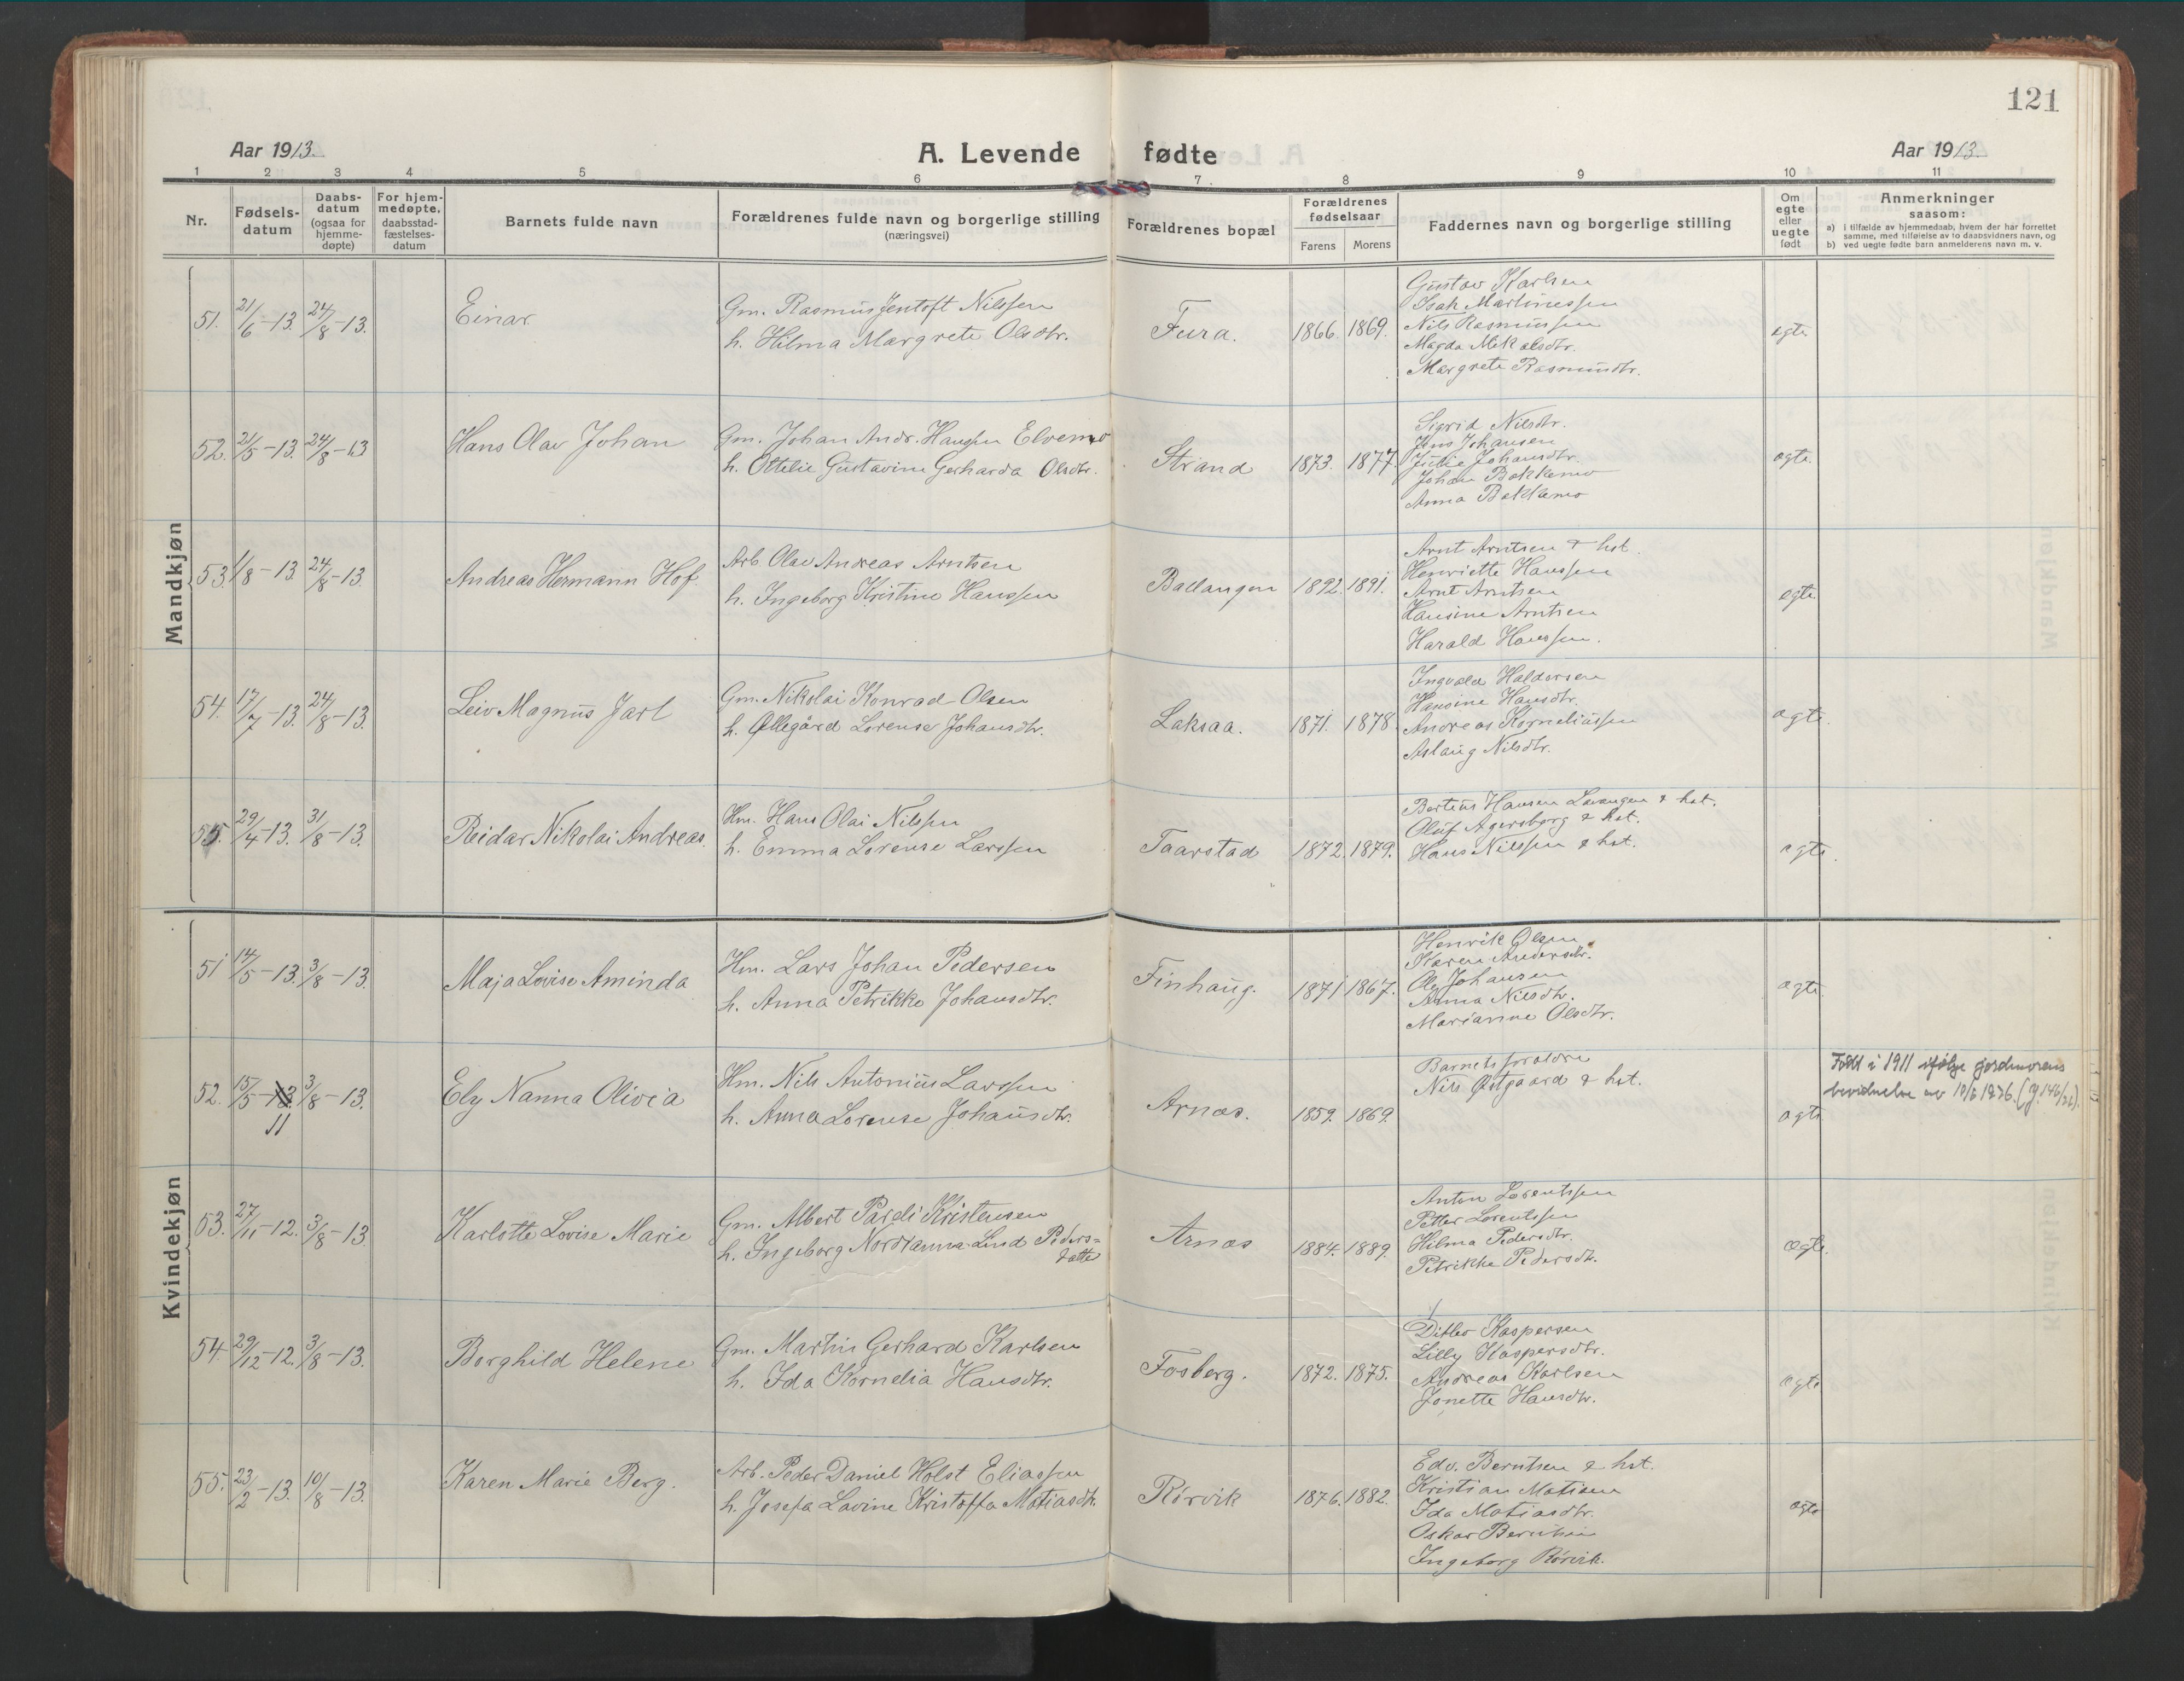 121
Aar 1913.
A. Levende fødte
Aar 1913.
1 2 3 4 5 6 7 8 9 10 11
Nr.
Fødsels-
datum
Daabs-
datum
(ogsaa for
hjemme-
døpte)
For hjem-
medøpte,
daabsstad-
fæstelses-
datum
Barnets fulde navn
Forældrenes fulde navn og borgerlige stilling
(næringsvei)
Forældrenes bopæl
Forældrenes
fødselsaar
Farens Morens
Faddernes navn og borgerlige stilling
Om
egte
eller
uegte
født
Anmerkninger
saasom:
a) i tilfælde av hjemmedaab, hvem der har forrettet
samme, med tilføielse av to daabsvidners navn, og
b) ved uegte fødte barn anmelderens navn m. v.
Mandkjøn
51. 21/6-13. 24/8-13. Einar
Gm. Rasmus Jentoft Nilssen
h. Hilma Margrete Olsdtr.
Fura. 1866. 1869.
Gustav Karlsen
Isak Martinessen
Nils Rasmussen
Magda Mekalsdtr.
Margrete Rasmusdtr.
egte
52. 21/5-13. 24/8-13 Hans Olav Johan
Gm. Johan Andr. Haugen Elvemo
h. Ottelie Gustavine Gerharda Olsdtr.
Strand 1873. 1877.
Sigrid Nilsdtr.
Jens Johansen
Julie Johansdtr.
Johan Bakkemo
Anna Bakkemo
egte.
53 1/8-13. 24/8-13. Andreas Hermann Hof.
Arb Olav Andreas Arntsen
h. Ingeborg Kristine Hanssen
Ballangen 1892. 1891.
Arnt Arntsen & hst.
Henriette Hanssen
Arnt Arntsen
Hansine Arntsen
Harald Hanssen.
egte.
54. 17/7-13. 24/8-13 Leiv Magnus Jarl
Gm. Nikolai Konrad Olsen
h. Øllegård Lorense Johansdtr.
Laksaa. 1871. 1878
Ingvald Haldorsen
Hansine Hansdtr.
Andreas Korneliussen
Aslaug Nilsdtr.
egte.
55. 29/4-13. 31/8-13. Reidar Nikolai Andreas.
Hm. Hans Olai Nilssen
h. Emma Lorense Larssen
Taarstad 1872. 1879.
Bertius Hansen Lavangen & hst.
Oluf Agersborg & hst.
Hans Nilssen & hst.
egte.
Kvindekjøn
51 14/5-13. 3/8-13. Maja Lovise Aminda
Hm. Lars Johan Pedersen
h. Anna Petrikke Johansdtr.
Finhaug. 1871 1867.
Henrik Olsen
Karen Andersdtr.
Ole Johansen
Anna Nilsdtr.
Marianne Olsdtr.
egte.
52. 15/5-13. 3/8-13. Ely Nanna Olivia
11
Hm. Nils Antonius Larssen
h. Anna Lorense Johansdtr.
Arnas. 1859. 1869.
Barnets foreldre
Nils Østgaard & hst.
egte
Født i 1911 ifølge jordmorens
bevidnelse av 18/6 1926. (J. 146/26).
53. 27/11-12. 3/8-13 Karlotte Lovise Marie
Gm. Albert Pareli Kristensen
h. Ingeborg Nordianna Lind Peders=
datter
Arnas 1884. 1889.
Anton Lorentssen
Petter Lorentssen
Hilma Pedersdtr.
Petrikke Pedersdtr.
egte.
54. 29/12-12. 3/8-13. Borghild Helene
Gm. Martin Gerhard Karlsen
h. Ida Kornelia Hansdtr.
Fosberg. 1872. 1875.
Ditlev Kaspersen
Lilly Kaspersdtr.
Andreas Karlsen
Jonette Hansdtr.
egte
55. 23/2-13. 10/8-13. Karen Marie Berg.
Arb. Peder Daniel Holst Eliassen
h. Josefa Lavine Kristoffa Matiasdtr.
Rörvik 1876. 1882.
Edv. Berntsen & hst.
Kristian Matisen
Ida Matiasdtr.
Oskar Berntsen
Ingeborg Rörvik.
egte